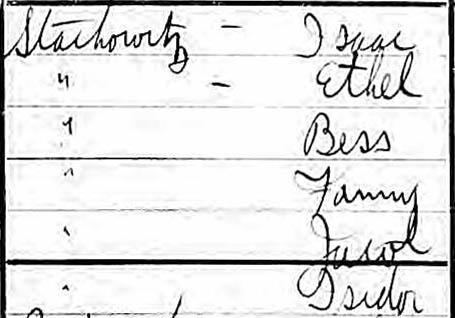 Stachowitz - Isaac
" - Ethel
" Bess
" Fanny
" Jacob
" Isidor